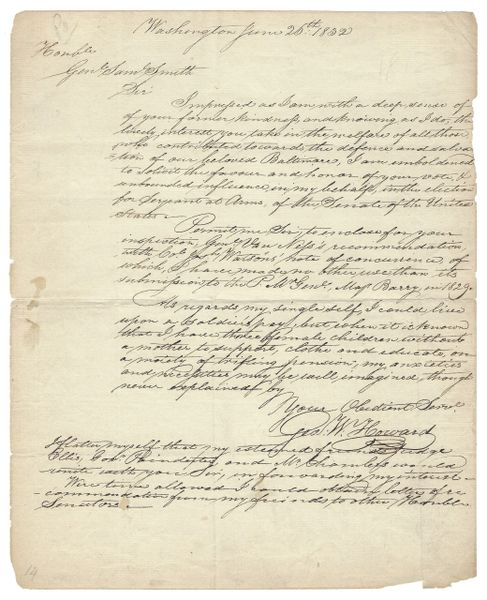 Washington June 26th 1832
Honble
Genl. Saml. Smith
Sir
Impressed as I am with a deep sense of
of your former kindness, and knowing as I do, the
lively interest you take in the welfare of all those
who contributed towards the defence and salva-
tion of our beloved Baltimore, I am emboldened
to solicit the favour and honor of your vote, &
unbounded influence in my behalf, in the election
for Sergeant at Arms, of the Senate of the United
States.
Permit me Sir, to enclose for your
inspection, Genl. Van Ness's recommendation,
with Col. Watsons' note of concurrence, of
which, I have made no other use than its
submission to the P. M. Genl. Majr Barry in 1829.
As regards my single self, I could live
upon a Soldiers pay, but when it is known
that I have three female children without
a mother to support, clothe and educate, on
a moiety of trifling pension, my anxieties
and necessities may be well imagined, though
never explained by
Your Obedient Servt.
Geo. W. Howard
I flatter myself that my esteemed friends Judge
Ellis, Govr. Poindexter and Mr. Chambers would
unite with you Sir, in forwarding my interest
Were time allowed I could obtain letters of re
-commendation from my friends to other Honble
Senators.
14